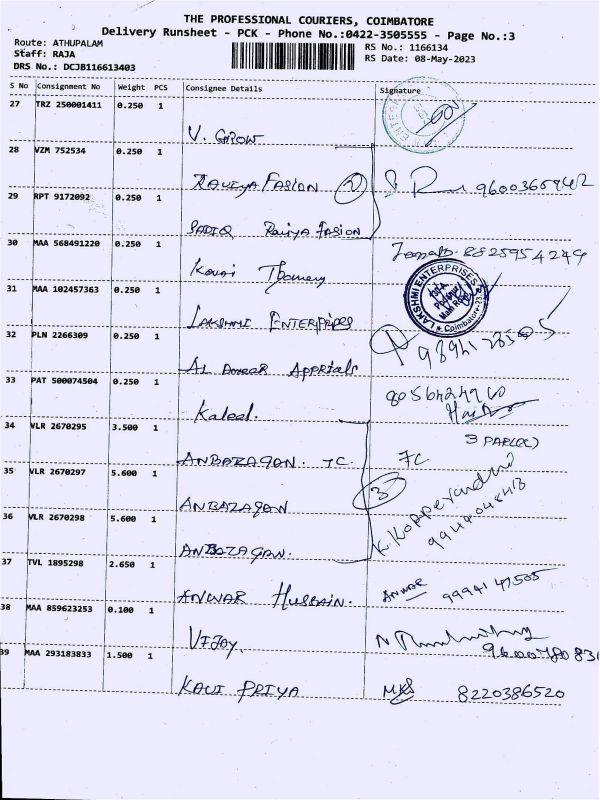 THE PROFESSIONAL COURIERS, COIMBATORE
Delivery Runsheet - PCK - Phone No.:0422-3505555 - Page No.:3
Route: ATHUPALAM
Staff: RAJA
DRS No.: DCJB116613403
RS No.: 1166134
RS Date: 08-May-2023
S No Consignment No Weight PCS Consignee Details Signature
27 TRZ 250001411 0.250 1
V. GROW
28 VZM 752534 0.250 1
RAVIYA FASION 2
29 RPT 9172092 0.250 1
SADIQ Raviya FASION
30 MAA 568491220 0.250 1
8825954249
Kovai
31 MAA 102457363 0.250 1
LAKSHMI ENTERPRISES
Coimbatore-23
LAKSHMI ENTERPRISES
32 PLN 2266309 0.250 1
AL Ameer Apprials
33 PAT 500074504 0.250 1
Kaleel.
34 VLR 2670295 3.500 1
3 PARCEL
ANBAZAGAN. TC 7C
35 VLR 2670297 5.600 1
ANBAZAGAN 3
36 VLR 2670298 5.600 1
K. Kopperundevi
9944048413
ANBAZAGAN.
37 TVL 1895298 2.650 1
ANWAR HUSSAIN. ANWAR 9994147505
38 MAA 859623253 0.100 1
VIJAY.
39 MAA 293183833 1.500 1
KAVI PRIYA 8220386520